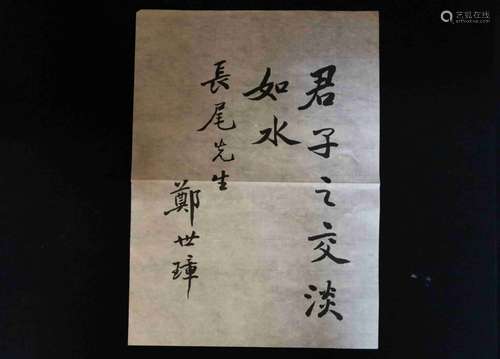 君子之交淡
如水
長尾先生
鄭世璋
艺狐在线